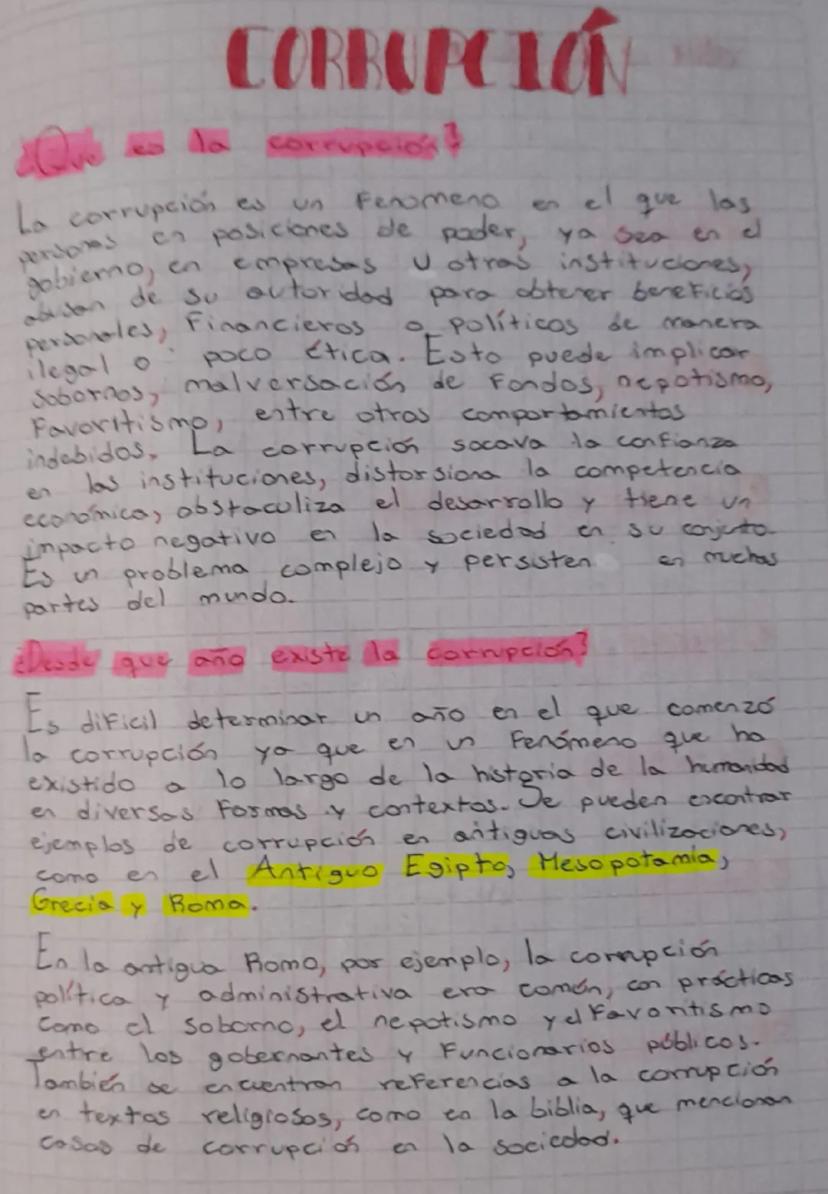 CORRUPCIÓN
¿Que es la corrupción?
La corrupción es un Fenomeno en el que las
personas en posiciones de poder, ya sea en el
gobierno, en empresas u otras instituciones,
abusan de su autoridad para obtener beneficios
personales, Financieros o políticos de manera
ilegal o poco ética. Esto puede implicar
sobornos, malversación de Fondos, nepotismo,
Favoritismo, entre otros comportamientos
indebidos. La corrupción socava la confianza
en las instituciones, distorsiona la competencia
económica, obstaculiza el desarrollo y tiene un
impacto negativo en la sociedad en su conjuto.
Es un problema complejo y persisten en muchas
partes del mundo.
¿Desde que año existe la corrupción?
Es dificil determinar un año en el que comenzó
la corrupción ya que en un Fenómeno que ha
existido a lo largo de la historia de la humanidad
en diversas Formas y contextos. Se pueden encontrar
ejemplos de corrupción en antiguas civilizaciones,
como en el Antiguo Egipto, Mesopotamia,
Grecia y Roma.
En la antigua Roma, por ejemplo, la corrupción
política y administrativa era común, con prácticas
como el soborno, el nepotismo y el Favoritismo
entre los gobernantes y Funcionarios públicos.
También se encuentran referencias a la corrupción
en textos religiosos, como en la biblia, que mencionan
casos de corrupción en la sociedad.